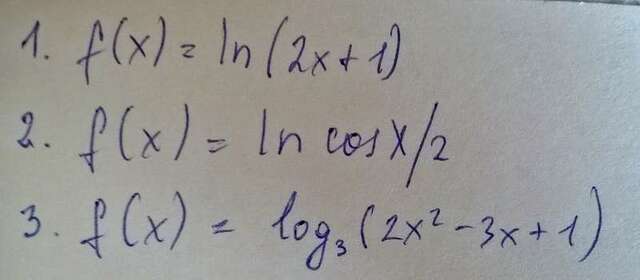 1. f(x) = ln(2x+1)
2. f(x) = ln cosx/2
3. f(x) = log₃(2x²-3x+1)